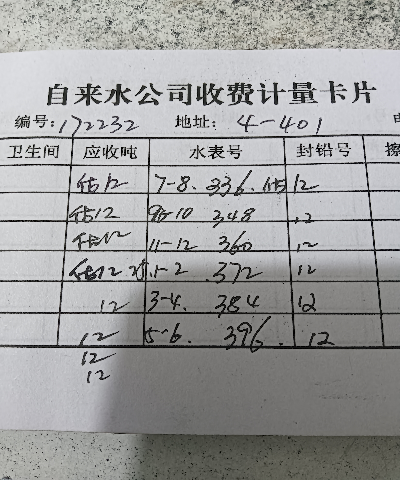 自来水公司收费计量卡片
编号: 172232 地址: 4-401
卫生间 应收吨 水表号 封铅号
估12 7-8. 336. 估12
估12 9-10 348 .12
估12 11-12 360 .12
估12 1-2 .372 12
12 3-4. 384 12
12 5-6. 396. .12
12
12